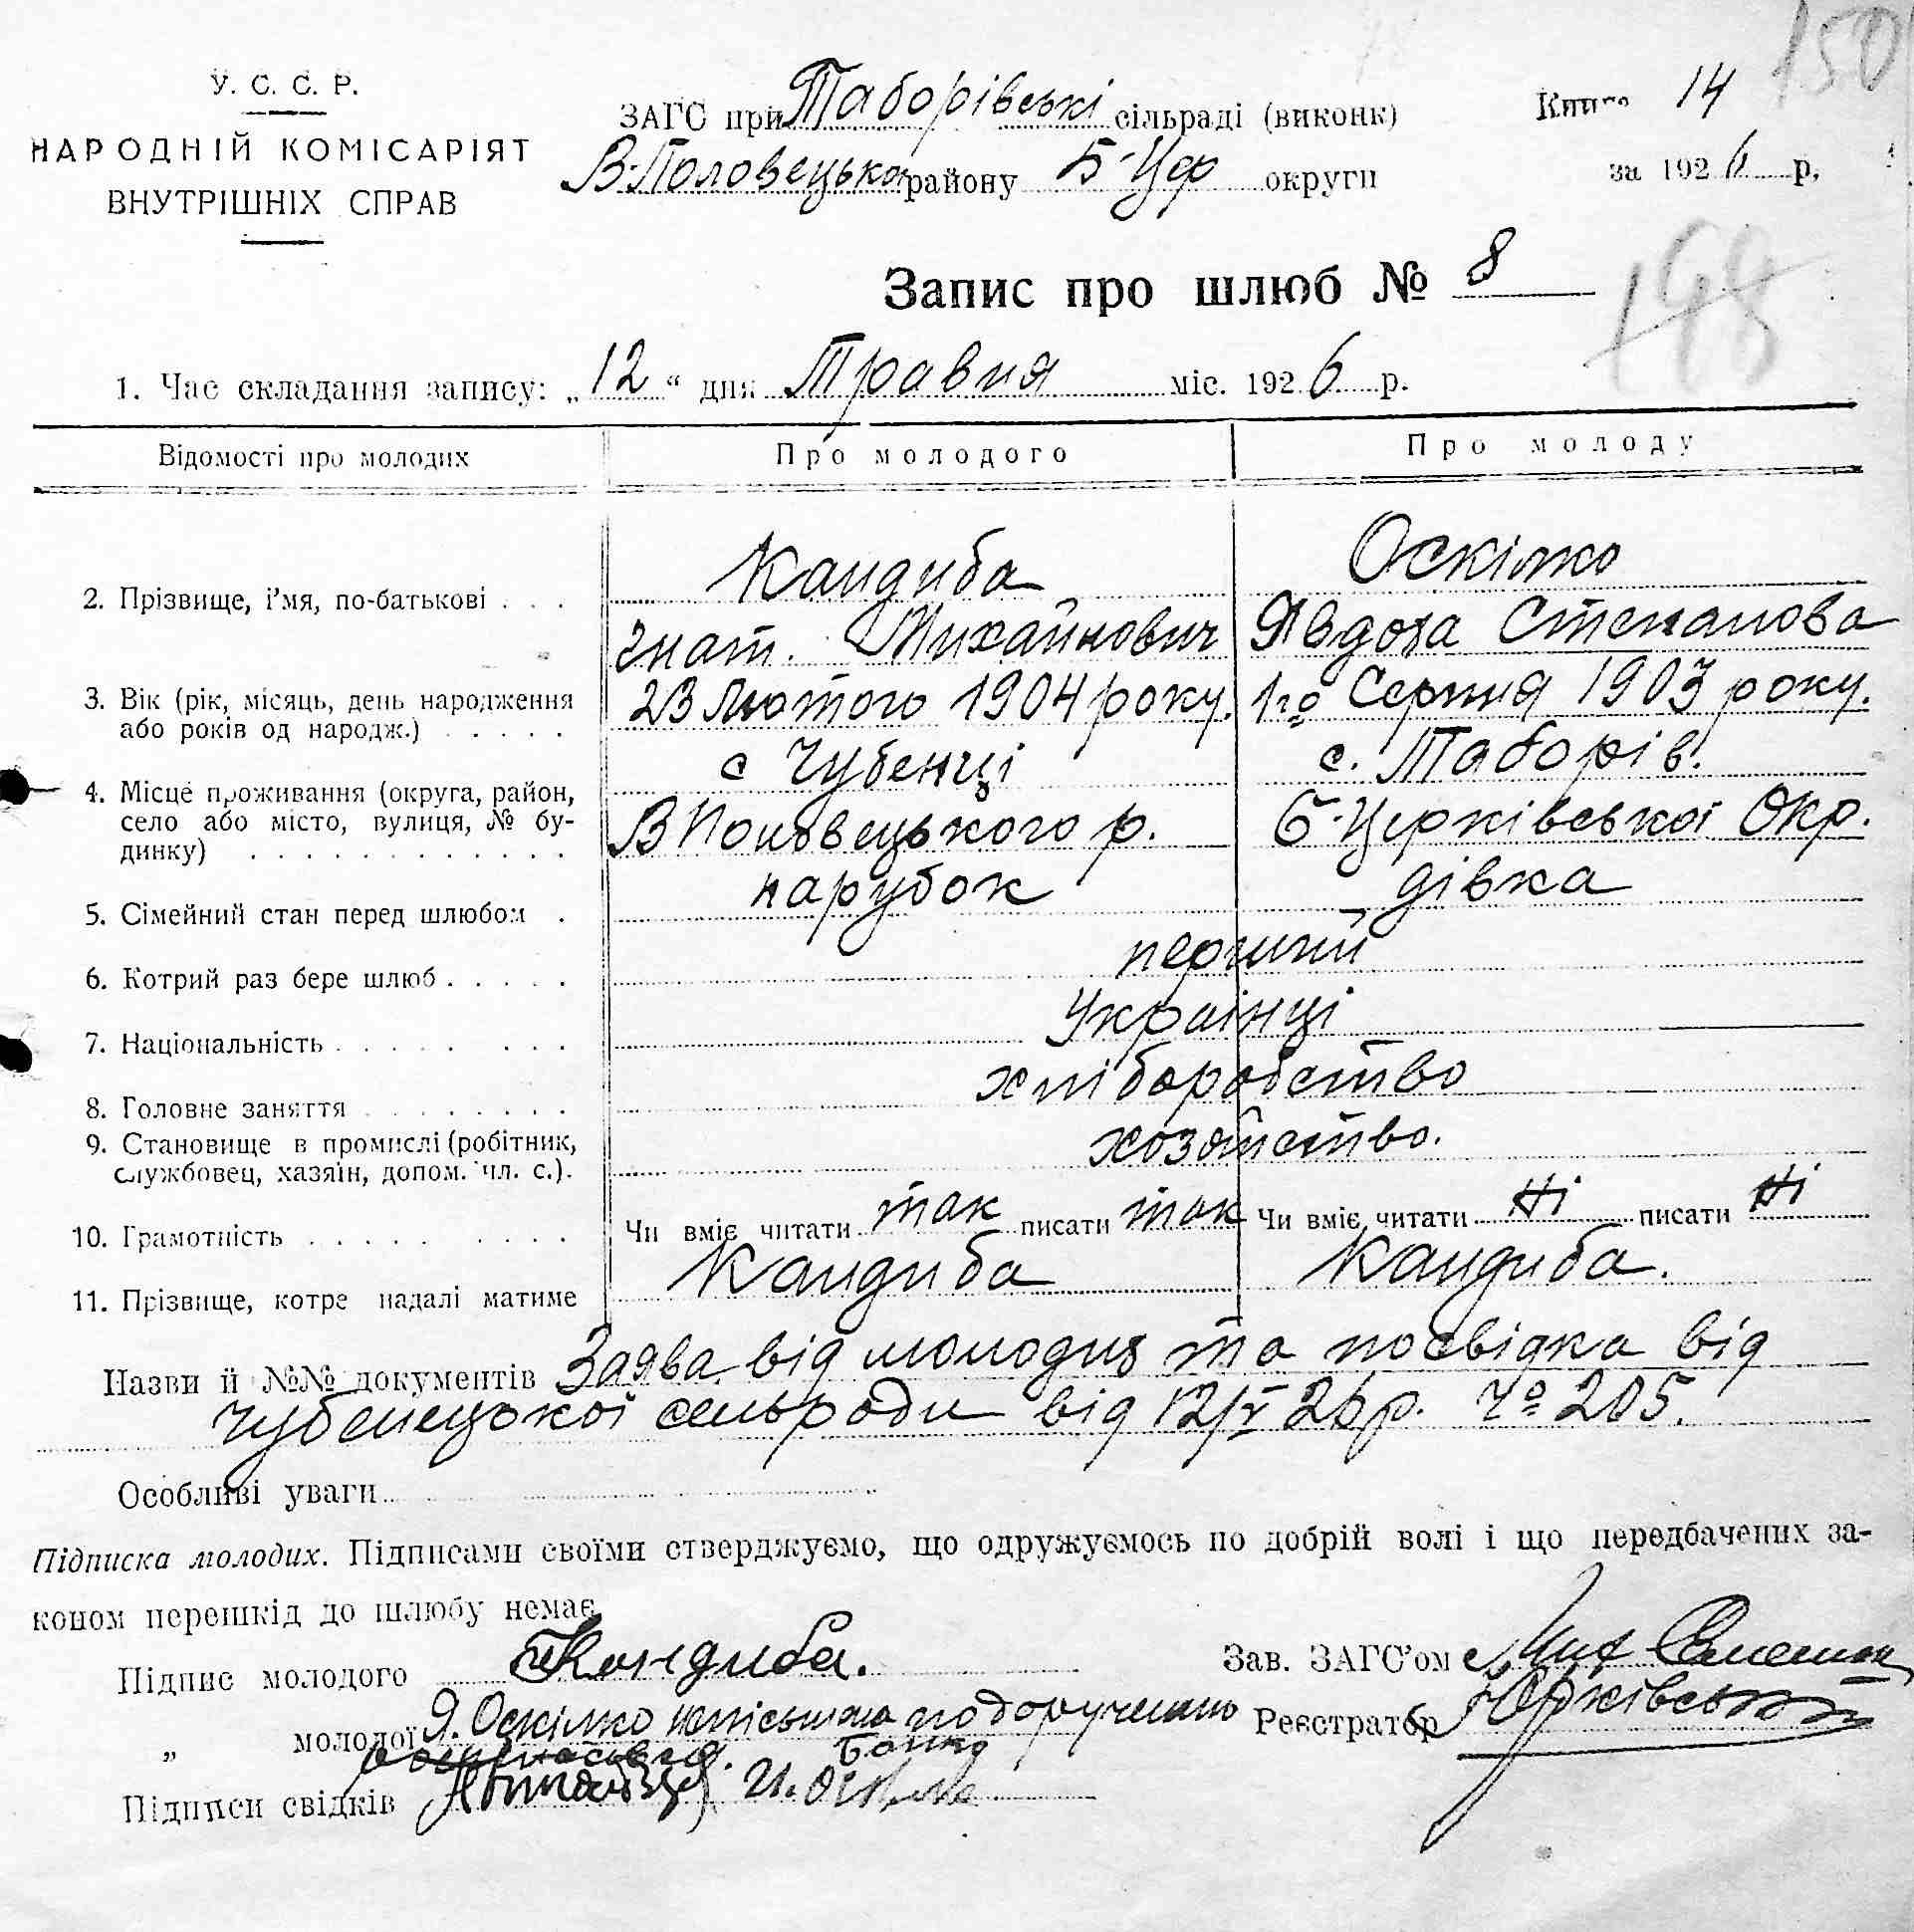 150
У. С. С. Р.
НАРОДНІЙ КОМІСАРІЯТ
ВНУТРІШНІХ СПРАВ
ЗАГС при Таборівські сільраді (виконк) Книга 14
В-Половецька району Б-Цер округи за 1926 р,
Запис про шлюб № 8
198
1. Час складання запису: „12“ дня Травня міс. 1926 р.
Відомості про молодих Про молодого Про молоду
Кандиба Оскілко
2. Прізвище, і'мя, по-батькові . . .
Гнат. Михайлович Явдоха Степанова
3. Вік (рік, місяць, день народження 23 Лютого 1904 року. 1го Серпня 1903 року.
або років од народж.) . . . . .
с Чубенці с. Таборів.
4. Місце проживання (округа, район,
село або місто, вулиця, № бу- В Половецького р. Б-Церківської Окр.
динку) . . . . . . . . . . . .
5. Сімейний стан перед шлюбом . парубок дівка
6. Котрий раз бере шлюб . . . . . перший
7. Національність . . . . . . . . Українці
8. Головне заняття . . . . . . . . хліборобство
9. Становище в промислі (робітник, хозяйство.
службовец, хазяїн, допом. чл. с.).
10. Грамотність . . . . . . . . . Чи вміє читати так писати так Чи вміє читати Ні писати Ні
11. Прізвище, котре надалі матиме Кандиба Кандиба.
Назви й №№ документів Заява від молодих та посвідка від
Чубенецької сельради від 12/V 26 р. Чо 205.
Особливі уваги
Підписка молодих. Підписами своїми стверджуємо, що одружуємось по добрій волі і що передбачених за-
коном перешкід до шлюбу немає
Підпис молодого Кандиба. Зав. ЗАГС'ом
„ молодої Я. Оскілко неписьмена по доручению Реєстратор Юрківський
Підписи свідків